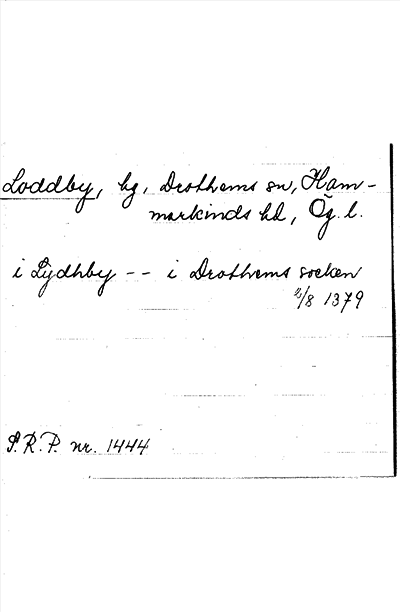 Loddby, hg, Drothems sn, Ham-
markinds hd, Ög. l.
i Lydhby -- i Drothems socken
/8 1379
S.R.P. nr. 1444